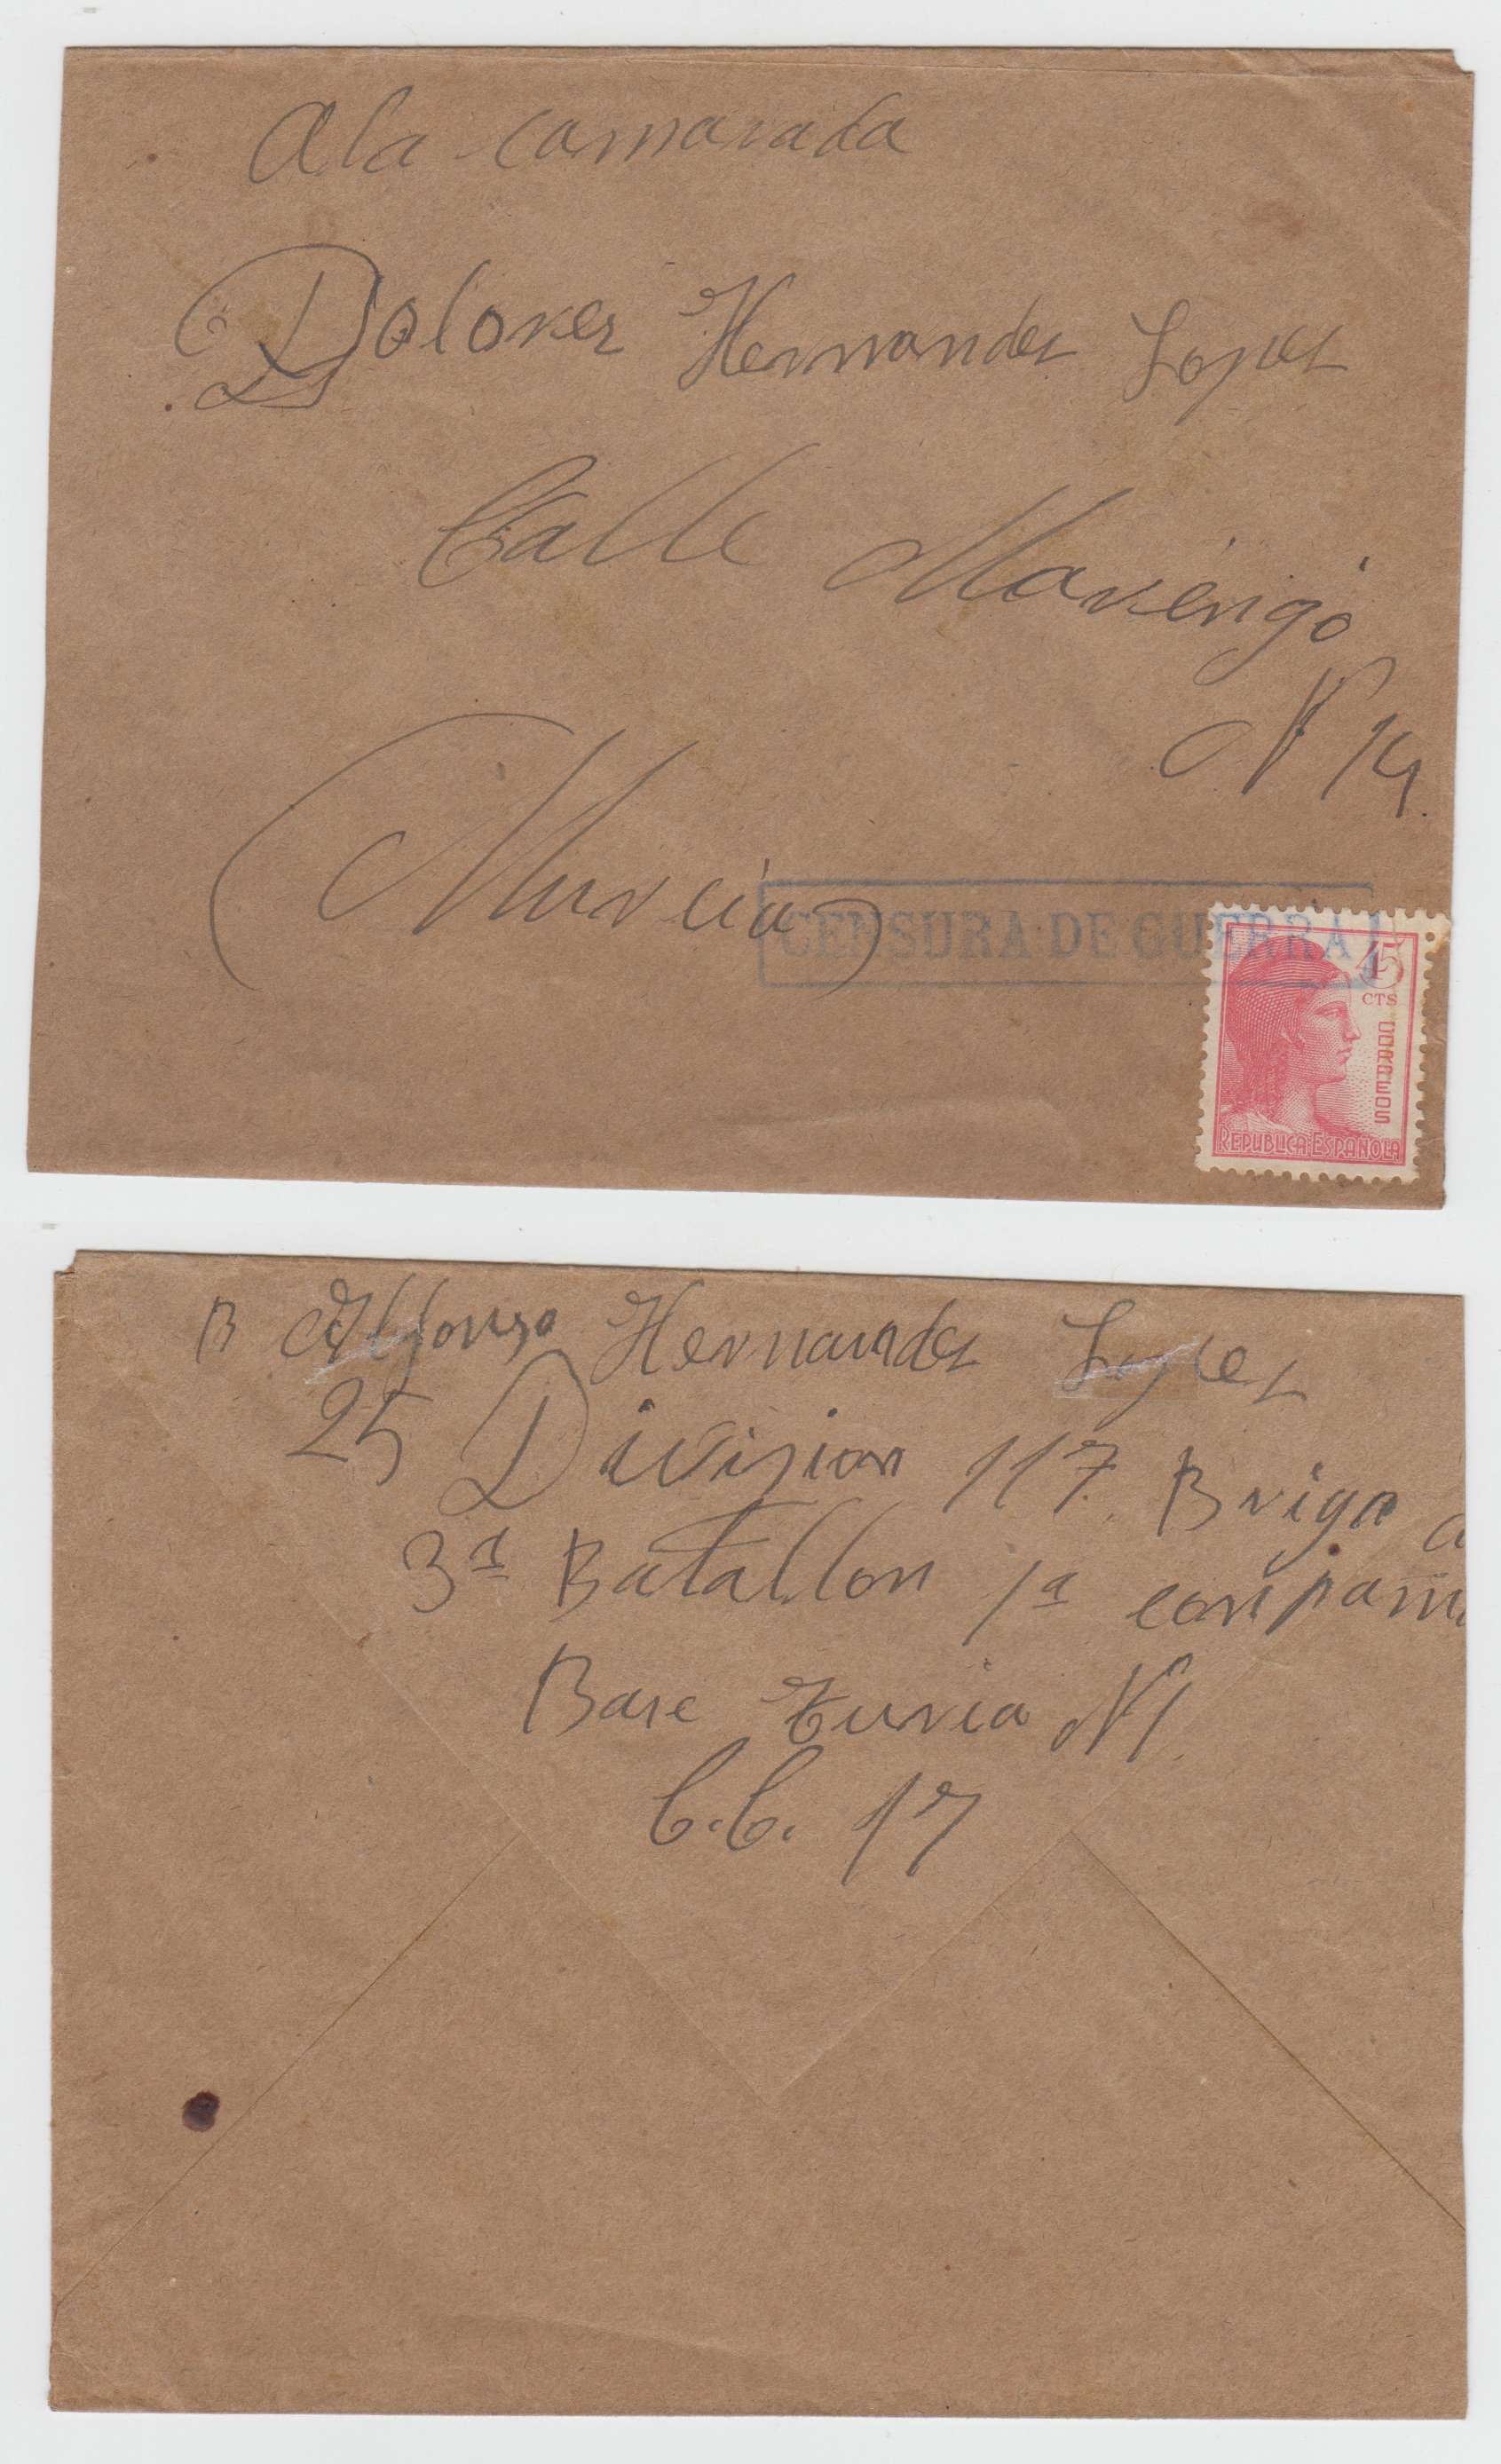 A la camarada
Dolores Hernandez Lopez
Calle Marengo
N 14
Murcia
CENSURA DE GUERRA
45
CTS
CORREOS
REPUBLICA ESPAÑOLA
R Alfonso Hernandez Lopez
25 Division 117 Briga a
3ª Batallon 1ª conpami
Base turia N1
C.C. 17